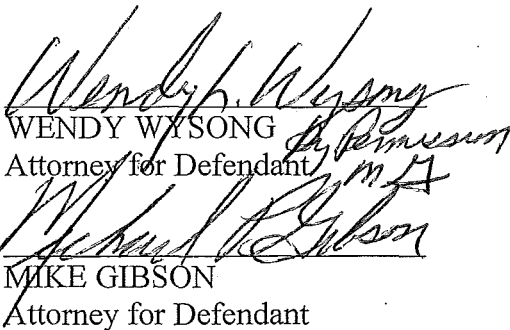 Wendy L. Wysong
WENDY WYSONG
by Permission
Attorney for Defendant
MG
Michael P. Gibson
MIKE GIBSON
Attorney for Defendant